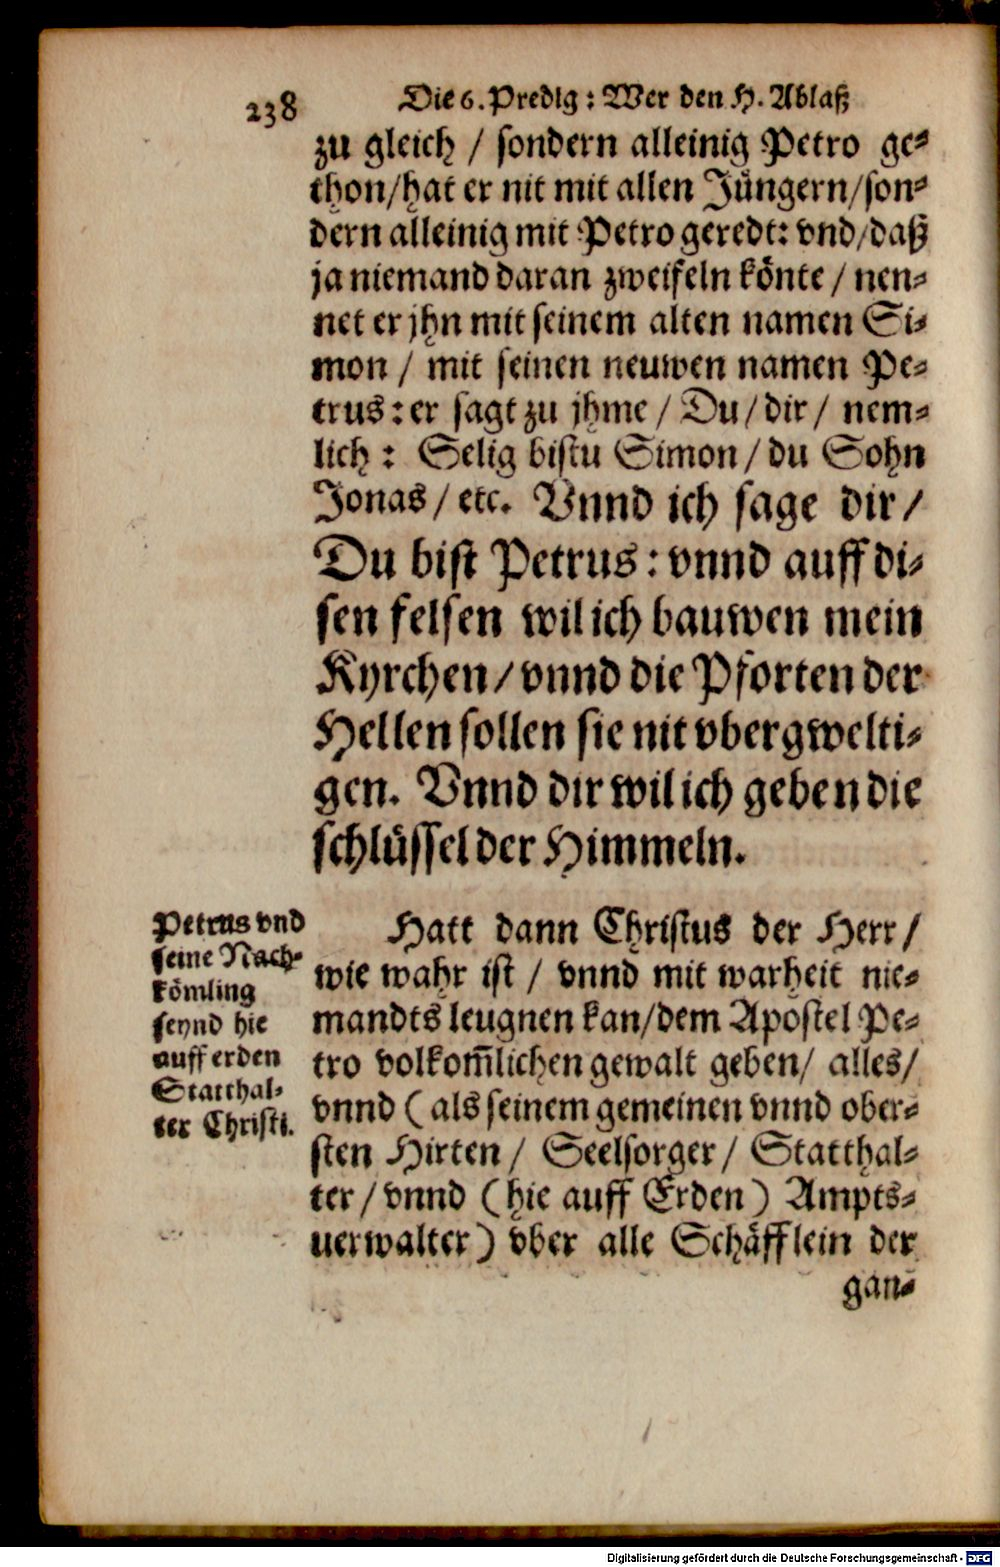 238
Die 6. Predig: Wer den H. Ablaß
zu gleich / sondern alleinig Petro ge⸗
thon/hat er nit mit allen Jüngern/son⸗
dern alleinig mit Petro geredt: vnd/daß
ja niemand daran zweifeln könte / nen⸗
net er jhn mit seinem alten namen Si⸗
mon / mit seinen neuwen namen Pe⸗
trus: er sagt zu jhme / Du/dir/ nem⸗
lich: Selig bistu Simon/du Sohn
Jonas/etc. Vnnd ich sage dir/
Du bist Petrus: vnnd auff di⸗
sen felsen wil ich bauwen mein
Kyrchen/vnnd die Pforten der
Hellen sollen sie nit vbergwelti⸗
gen. Vnnd dir wil ich geben die
schlüssel der Himmeln.
Petrus vnd
seine Nach⸗
kömling
seynd hie
auff erden
Statthal⸗
ter Christi.
Hatt dann Christus der Herr/
wie wahr ist / vnnd mit warheit nie⸗
mandts leugnen kan/dem Apostel Pe⸗
tro volkom̃lichen gewalt geben/ alles/
vnnd (als seinem gemeinen vnnd ober⸗
sten Hirten/ Seelsorger/ Statthal⸗
ter/vnnd (hie auff Erden) Ampts⸗
uerwalter) vber alle Schäfflein der
gan⸗
Digitalisierung gefördert durch die Deutsche Forschungsgemeinschaft - DFG